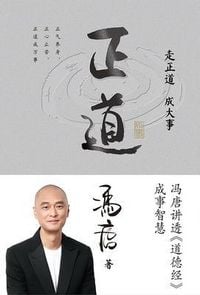 正道
走正道 成大事
正气养身，
正心正念，
正道成万事
冯唐 著
冯唐讲透《道德经》
成事智慧